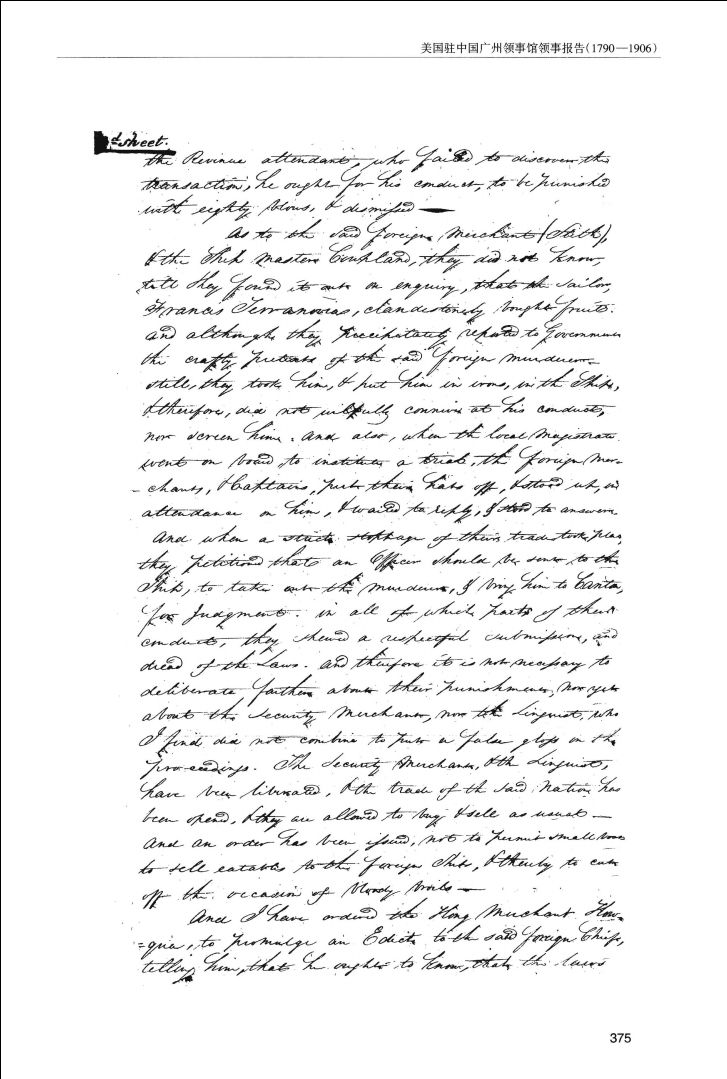 美国驻中国广州领事馆领事报告(1790—1906)
dsheet.
the Revenue attendants, who failed to discover the
transaction, he ought for his conduct, to be punished
with eighty blows, & dismissed —
As to the said foreign Merchant
& the Ship Master Coupland, they did not know,
till they found it out on enquiry, that the Sailor,
Francis Terranovias, clandestinely bought fruit.
and although they precipitately reported to Government
the crafty pretexts of the said foreign murderer
still, they took him, & put him in irons, in the Ship,
& therefore, did not wilfully connive at his conduct,
nor screen him. And also, when the local Magistrate
went on board, to institute a trial, the foreign Mer-
-chants, & Captains, put their hats off, & stood up, in
attendance on him, & waited to reply, & to answer.
And when a stoppage of their trade took place,
they petitioned that an Officer should be sent to the
Ship, to take out the murderer, & bring him to Canton,
for Judgment. in all of which parts of their
conduct, they shewed a respectful submission, and
dread of the Laws. and therefore it is not necessary to
deliberate farther about their punishment, nor yet
about the Security Merchant, nor the Linguist, who
I find did not combine to put a false gloss on the
proceedings. The Security Merchant, & the Linguist,
have been liberated, & the trade of the said Nation has
been opened, & they are allowed to buy & sell as usual —
And an order has been issued, not to permit small boats
to sell eatables to the foreign Ships, & thereby to cut
off the occasion of bloody broils —
And I have ordered the Hong Merchant How=
=qua, to promulge an Edict to the said foreign Chief,
telling him, that he ought to know, that the laws
375